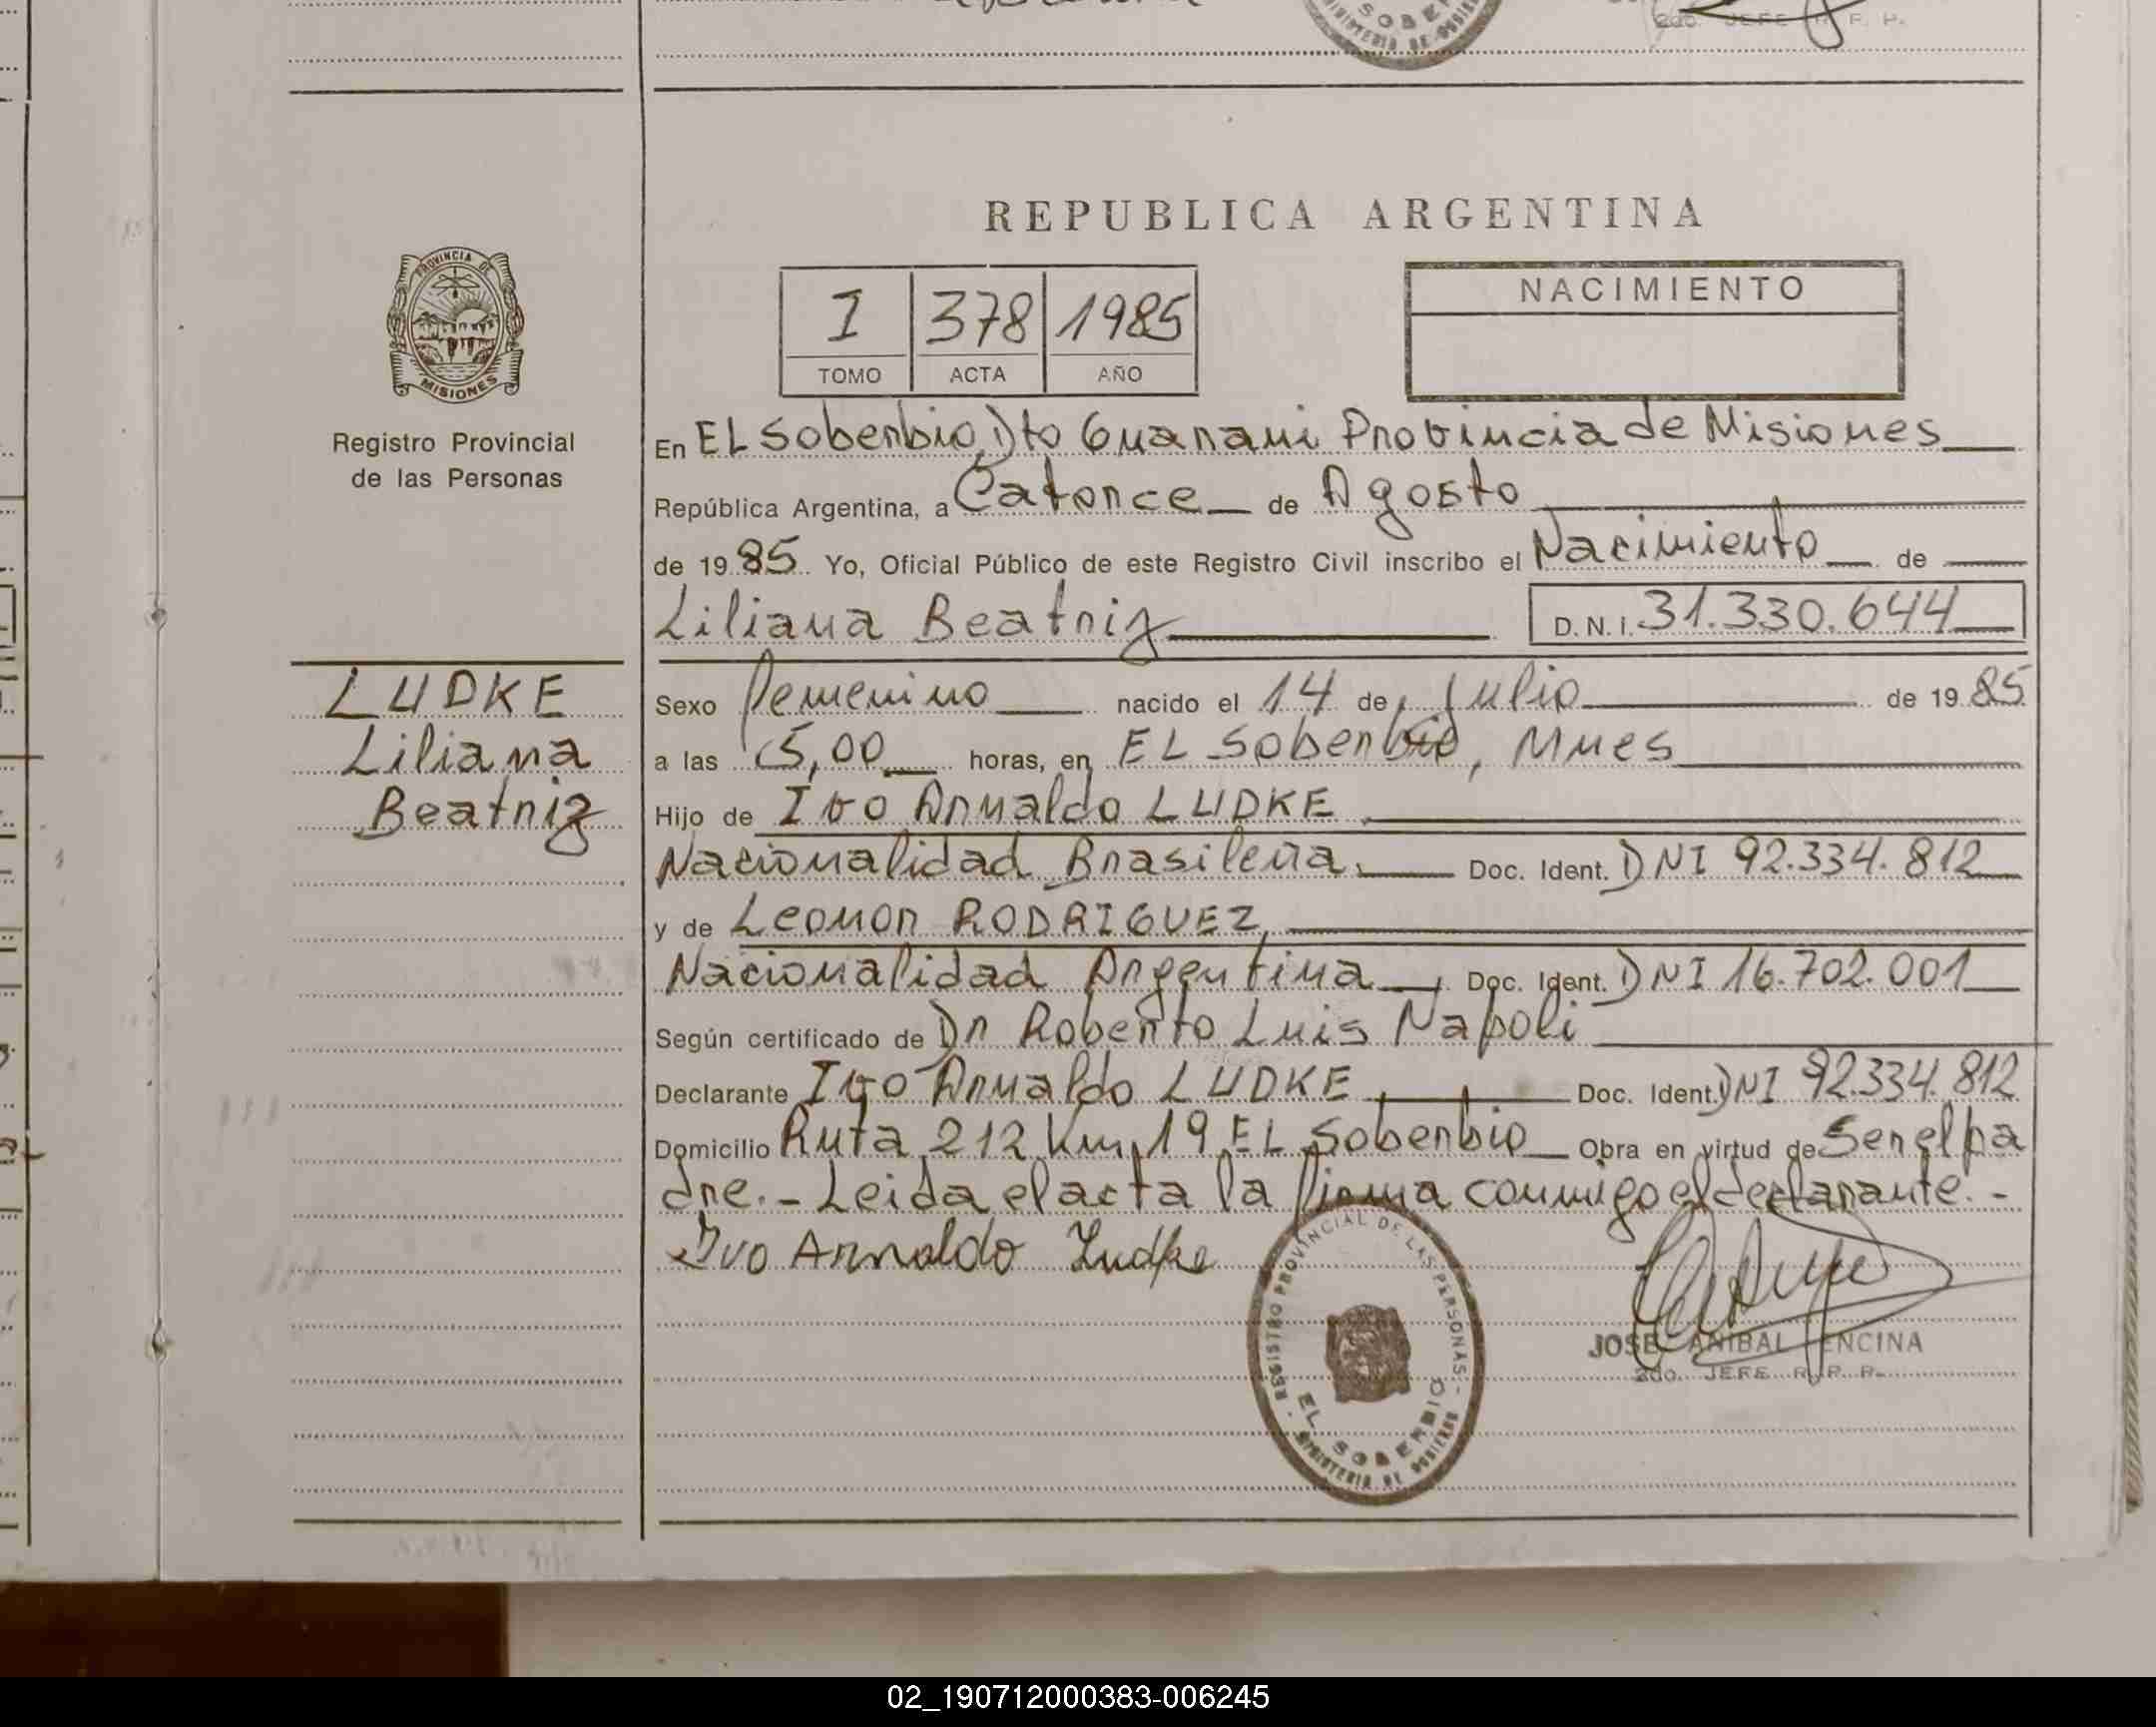 SOBER
MINISTERIO DE GOBIER
2do. JEFE R. P. P.
REPUBLICA ARGENTINA
PROVINCIA DE
MISIONES
Registro Provincial
de las Personas
I 378 1985
TOMO ACTA AÑO
NACIMIENTO
En EL Soberbio, Dto Guarani Provincia de Misiones
República Argentina, a Catorce de Agosto
de 1985 Yo, Oficial Público de este Registro Civil inscribo el Nacimiento de
Liliana Beatriz D.N.I. 31.330.644
LUDKE
Liliana
Beatriz
Sexo femenino nacido el 14 de Julio de 1985
a las 5,00 horas, en EL Soberbio, Mnes
Hijo de Ivo Arnaldo LUDKE
Nacionalidad Brasileña. Doc. Ident. DNI 92.334.812
y de Leonor RODRIGUEZ,
Nacionalidad Argentina, Doc. Ident. DNI 16.702.001
Según certificado de Dr Roberto Luis Napoli
Declarante Ivo Arnaldo LUDKE, Doc. Ident. DNI 92.334.812
Domicilio Ruta 212 Km 19 EL Soberbio Obra en virtud de Ser el pa
dre.- Leida el acta la firma conmigo el declarante.-
Ivo Arnaldo Ludke
REGISTRO PROVINCIAL DE LAS PERSONAS -
EL SOBERBIO
MINISTERIO DE GOBIERNO
JOSE ANIBAL ENCINA
2do. JEFE R. P. P.
02_190712000383-006245